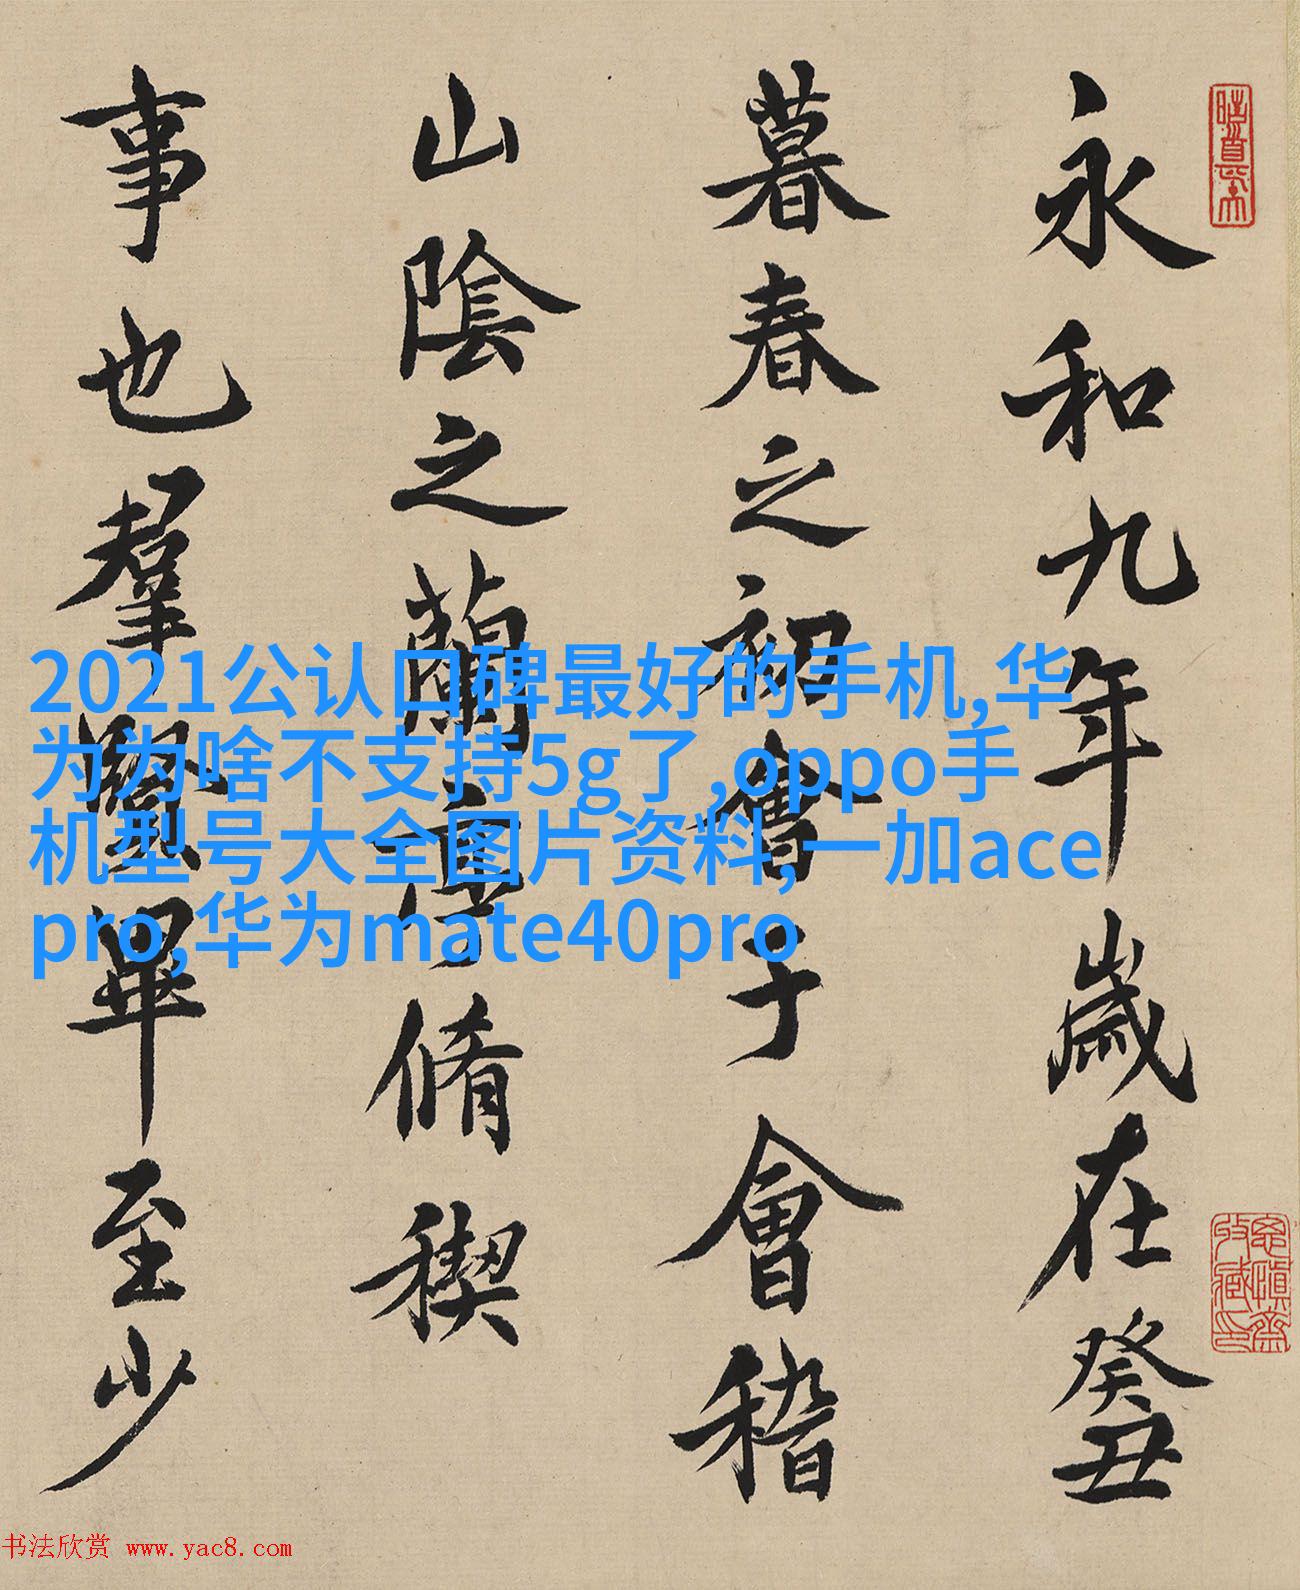 永和九年歲在癸丑
暮春之初會于會稽
山陰之蘭亭脩稧
事也羣賢畢至少
2021公认口碑最好的手机,华
为为啥不支持5g了,oppo手
机型号大全图片资料,一加ace
pro,华为mate40pro
书法欣赏 www.yac8.com